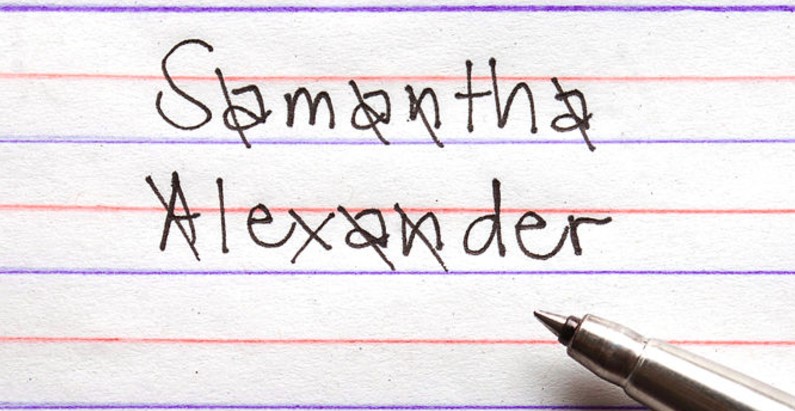 Samantha
Alexander